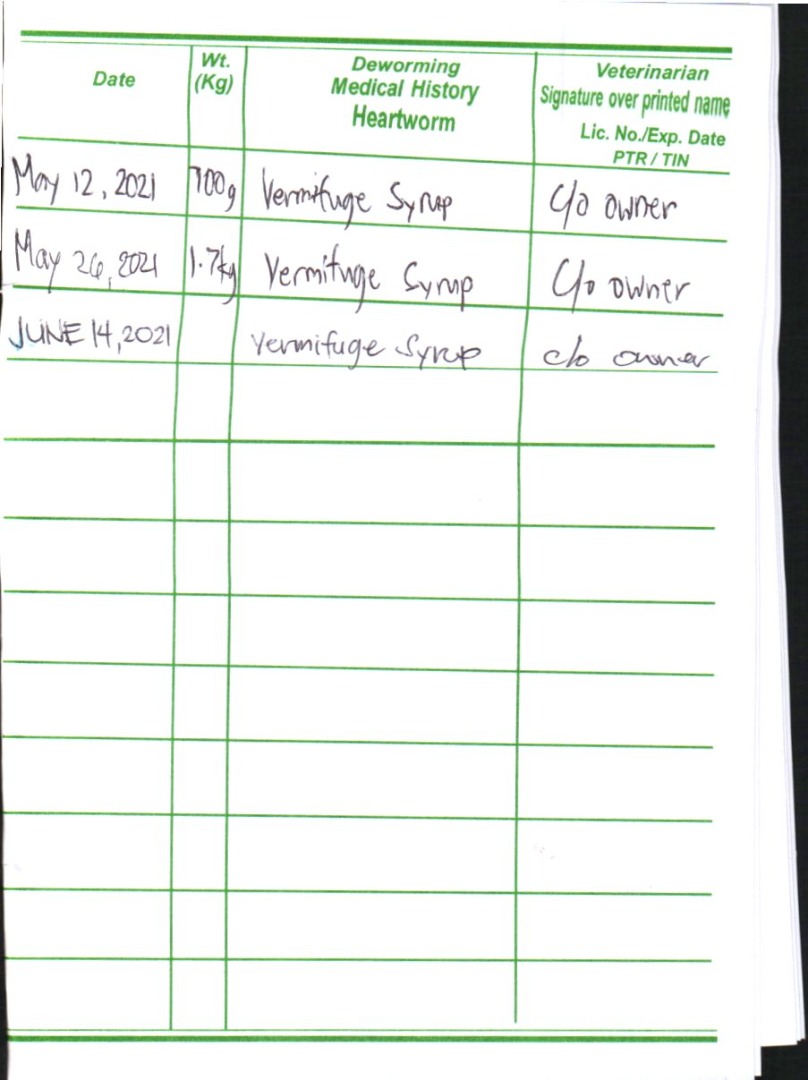 Date
Wt.
(Kg)
Deworming
Medical History
Heartworm
Veterinarian
Signature over printed name
Lic. No./Exp. Date
PTR / TIN
May 12, 2021 700g Vermifuge Syrup c/o owner
May 26, 2021 1.7kg Vermifuge Syrup c/o owner
JUNE 14, 2021 Vermifuge Syrup c/o owner